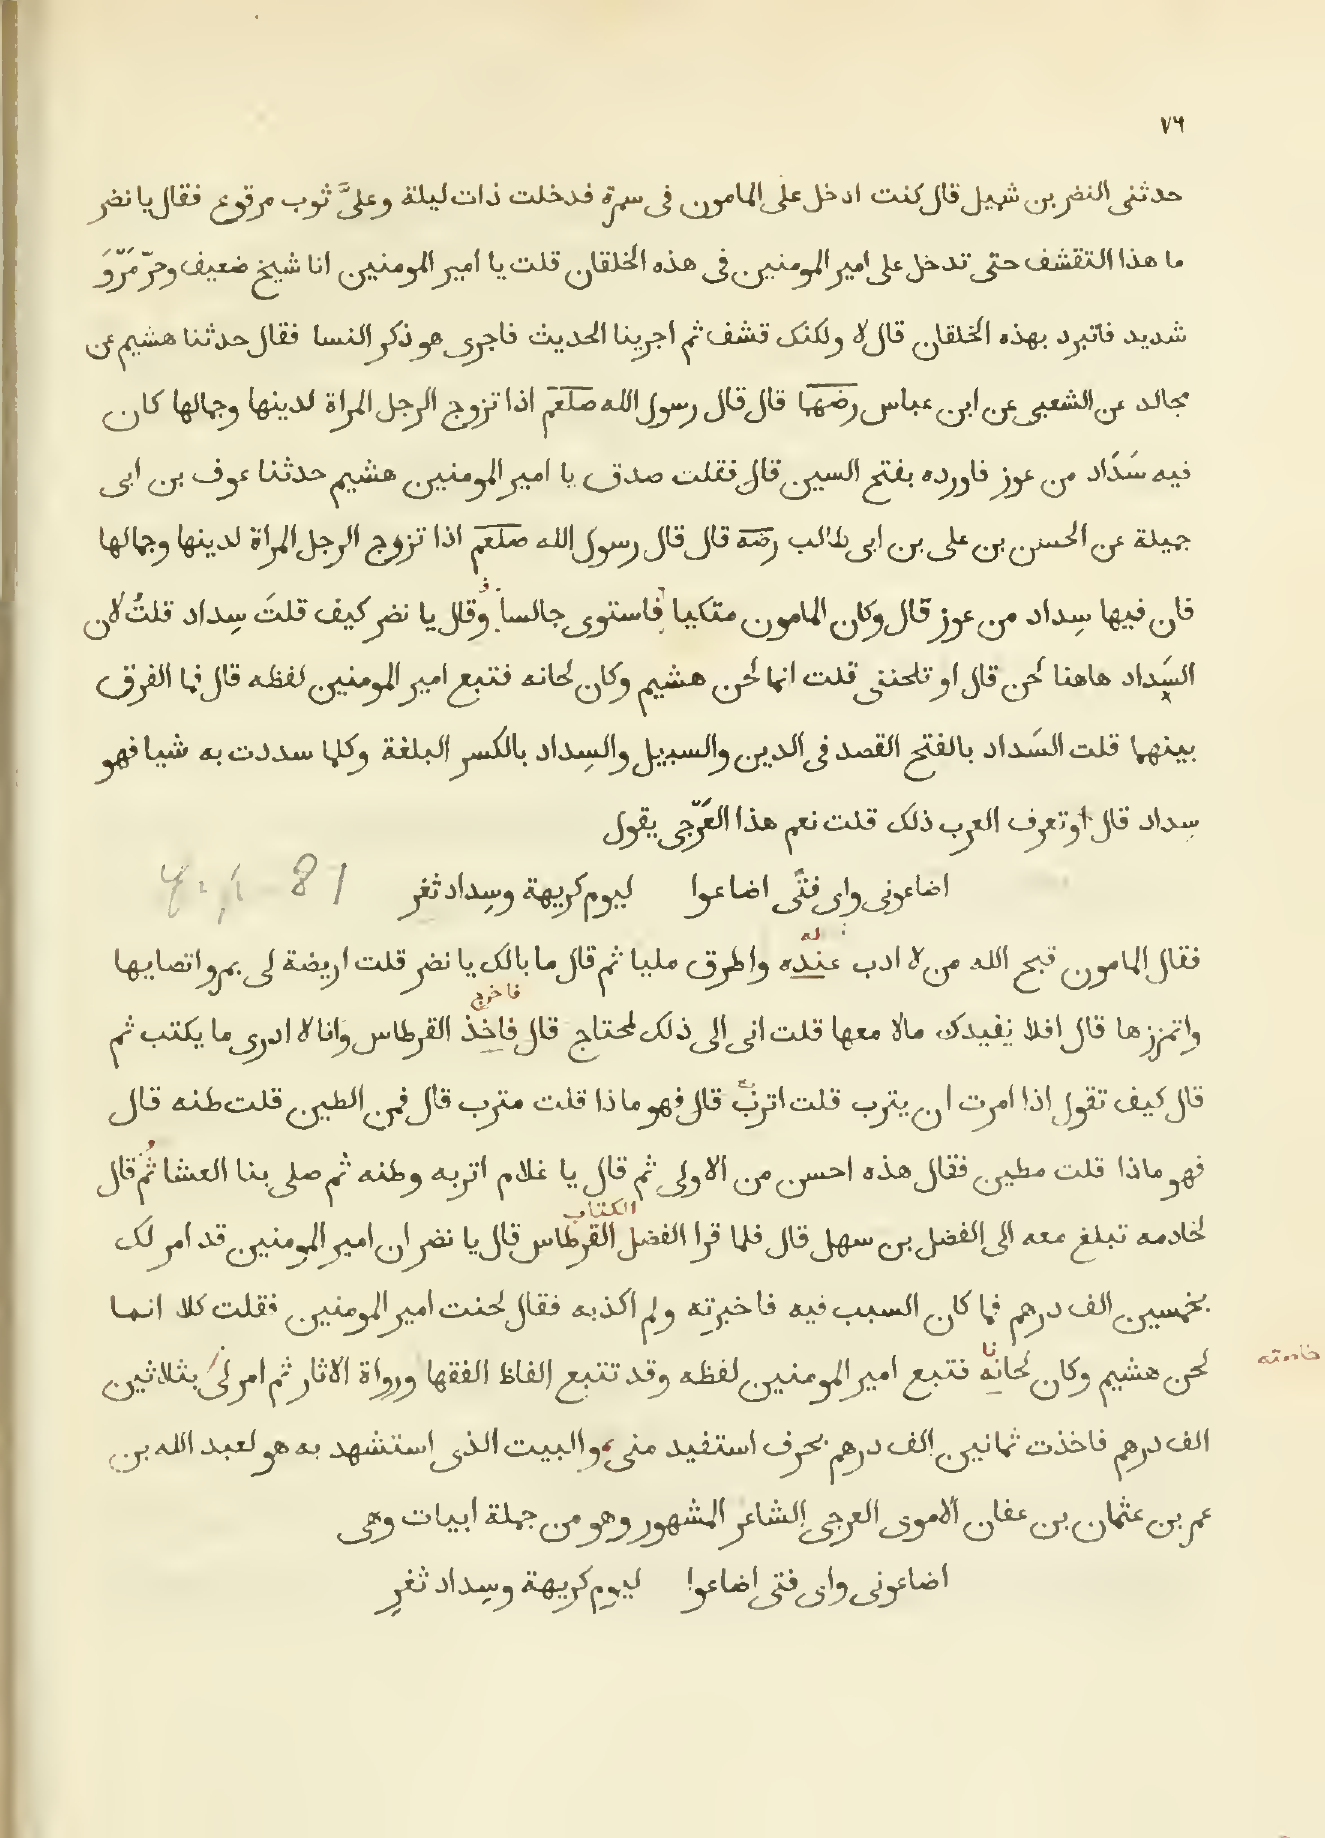 ٧٦
حدثنى النضر بن شميل قال كنت ادخل على المامون فى سمرة فدخلت ذات ليلة وعلىَّ ثوب مرقوع فقال يا نضر
ما هذا التقشف حتى تدخل على امير المومنين فى هذه الخلقان قلت يا امير المومنين انا شيخ ضعيف وحرّ مَرْوَ
شديد فاتبرد بهذه الخلقان قال لا ولكنك قشف ثم اجرينا الحديث فاجرى هو ذكر النسا فقال حدثنا هشيم عن
مجالد عن الشعبى عن ابن عباس رضهما قال قال رسول الله صلعم اذا تزوج الرجل المراة لدينها وجمالها كان
فيه سَدَاد من عوز فاورده بفتح السين قال فقلت صدق يا امير المومنين هشيم حدثنا عوف بن ابى
جميلة عن الحسن بن على بن ابى طالب رضه قال قال رسول الله صلعم اذا تزوج الرجل المراة لدينها وجمالها
فان فيها سِداد من عوز قال وكان المامون متكيا فاستوى جالسا وقال يا نضر كيف قلتَ سِداد قلتُ لان
السَداد هاهنا لحن قال او تلحننى قلت انما لحن هشيم وكان لحانه فتبع امير المومنين لفظه قال فما الفرق
بينهما قلت السَداد بالفتح القصد فى الدين والسبيل والسِداد بالكسر البلغة وكلما سددت به شيا فهو
سِداد قال اوتعرف العرب ذلك قلت نعم هذا العَرْجى يقول
اضاعونى واى فتًى اضاعوا ليوم كريهة وسِداد ثغر
81
له
فقال المامون قبح الله من لا ادب عنده واطرق مليا ثم قال ما بالك يا نضر قلت اريضة لى بمرو اتصابها
فاخرج
واتمززها قال افلا نفيدك مالا معها قلت انى الى ذلك لمحتاج قال فاخذ القرطاس وانا لا ادرى ما يكتب ثم
قال كيف تقول اذا امرت ان يترب قلت اتربْ قال فهو ماذا قلت مترب قال فمن الطين قلت طنه قال
فهو ماذا قلت مطين فقال هذه احسن من الاولى ثم قال يا غلام اتربه وطنه ثم صلى بنا العشا ثُم قال
الكتاب
لخادمه تبلغ معه الى الفضل بن سهل قال فلما قرا الفضل القرطاس قال يا نضر ان امير المومنين قد امر لك
بخمسين الف درهم فما كان السبب فيه فاخبرته ولم اكذبه فقال لحنت امير المومنين فقلت كلا انما
لحن هشيم وكان لحانه فتبع امير المومنين لفظه وقد تتبع الفاظ الفقها ورواة الاثار ثم امر لى بثلاثين
الف درهم فاخذت ثمانين الف درهم بحرف استفيد منى والبيت الذى استشهد به هو لعبد الله بن
عمر بن عثمان بن عفان الاموى العرجى الشاعر المشهور وهو من جملة ابيات وهى
اضاعونى واى فتى اضاعوا ليوم كريهة وسِداد ثغرِ